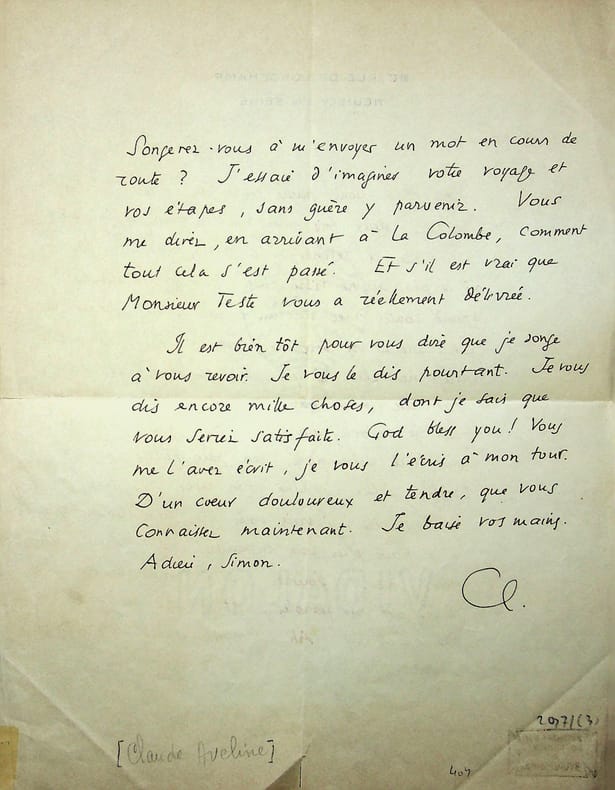 Songerez-vous à m'envoyer un mot en cours de
route ? J'essaie d'imaginer votre voyage et
vos étapes, sans guère y parvenir. Vous
me direz, en arrivant à La Colombe, comment
tout cela s'est passé. Et s'il est vrai que
Monsieur Teste vous a réellement délivrée.
Il est bien tôt pour vous dire que je songe
à vous revoir. Je vous le dis pourtant. Je vous
dis encore mille choses, dont je sais que
vous seriez satisfaite. God bless you ! Vous
me l'avez écrit, je vous l'écris à mon tour.
D'un coeur douloureux et tendre, que vous
connaissez maintenant. Je baise vos mains.
Adieu, Simon.
Cl.
2097/(3)
[Claude Aveline]